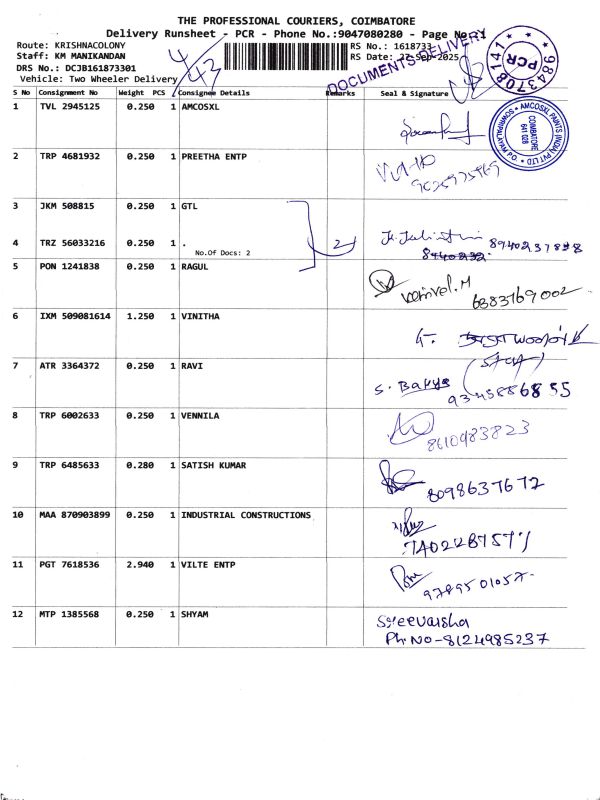 THE PROFESSIONAL COURIERS, COIMBATORE
Delivery Runsheet - PCR - Phone No.:9047080280 - Page No.:1
Route: KRISHNACOLONY
RS No.: 1618733
Staff: KM MANIKANDAN
RS Date: 27-Sep-2025
DRS No.: DCJB161873301
Vehicle: Two Wheeler Delivery
DOCUMENTS DELIVERY
PCR
9843708141
S No Consignment No Weight PCS Consignee Details Remarks Seal & Signature
1 TVL 2945125 0.250 1 AMCOSXL
AMCOSXL PAINTS (INDIA) PVT LTD
COIMBATORE
641 028
SOWRIPALAYAM P.O
2 TRP 4681932 0.250 1 PREETHA ENTP
3 JKM 508815 0.250 1 GTL
4 TRZ 56033216 0.250 1 .
No.Of Docs: 2
2
8940237898
5 PON 1241838 0.250 1 RAGUL
Vetrivel.M 6383769002
6 IXM 509081614 1.250 1 VINITHA
7 ATR 3364372 0.250 1 RAVI
(Staff)
S. Bakya
8 TRP 6002633 0.250 1 VENNILA
8610983823
9 TRP 6485633 0.280 1 SATISH KUMAR
8098637672
10 MAA 870903899 0.250 1 INDUSTRIAL CONSTRUCTIONS
11 PGT 7618536 2.940 1 VILTE ENTP
9789501057
12 MTP 1385568 0.250 1 SHYAM
Sreevarsha
Ph.No-8124985237